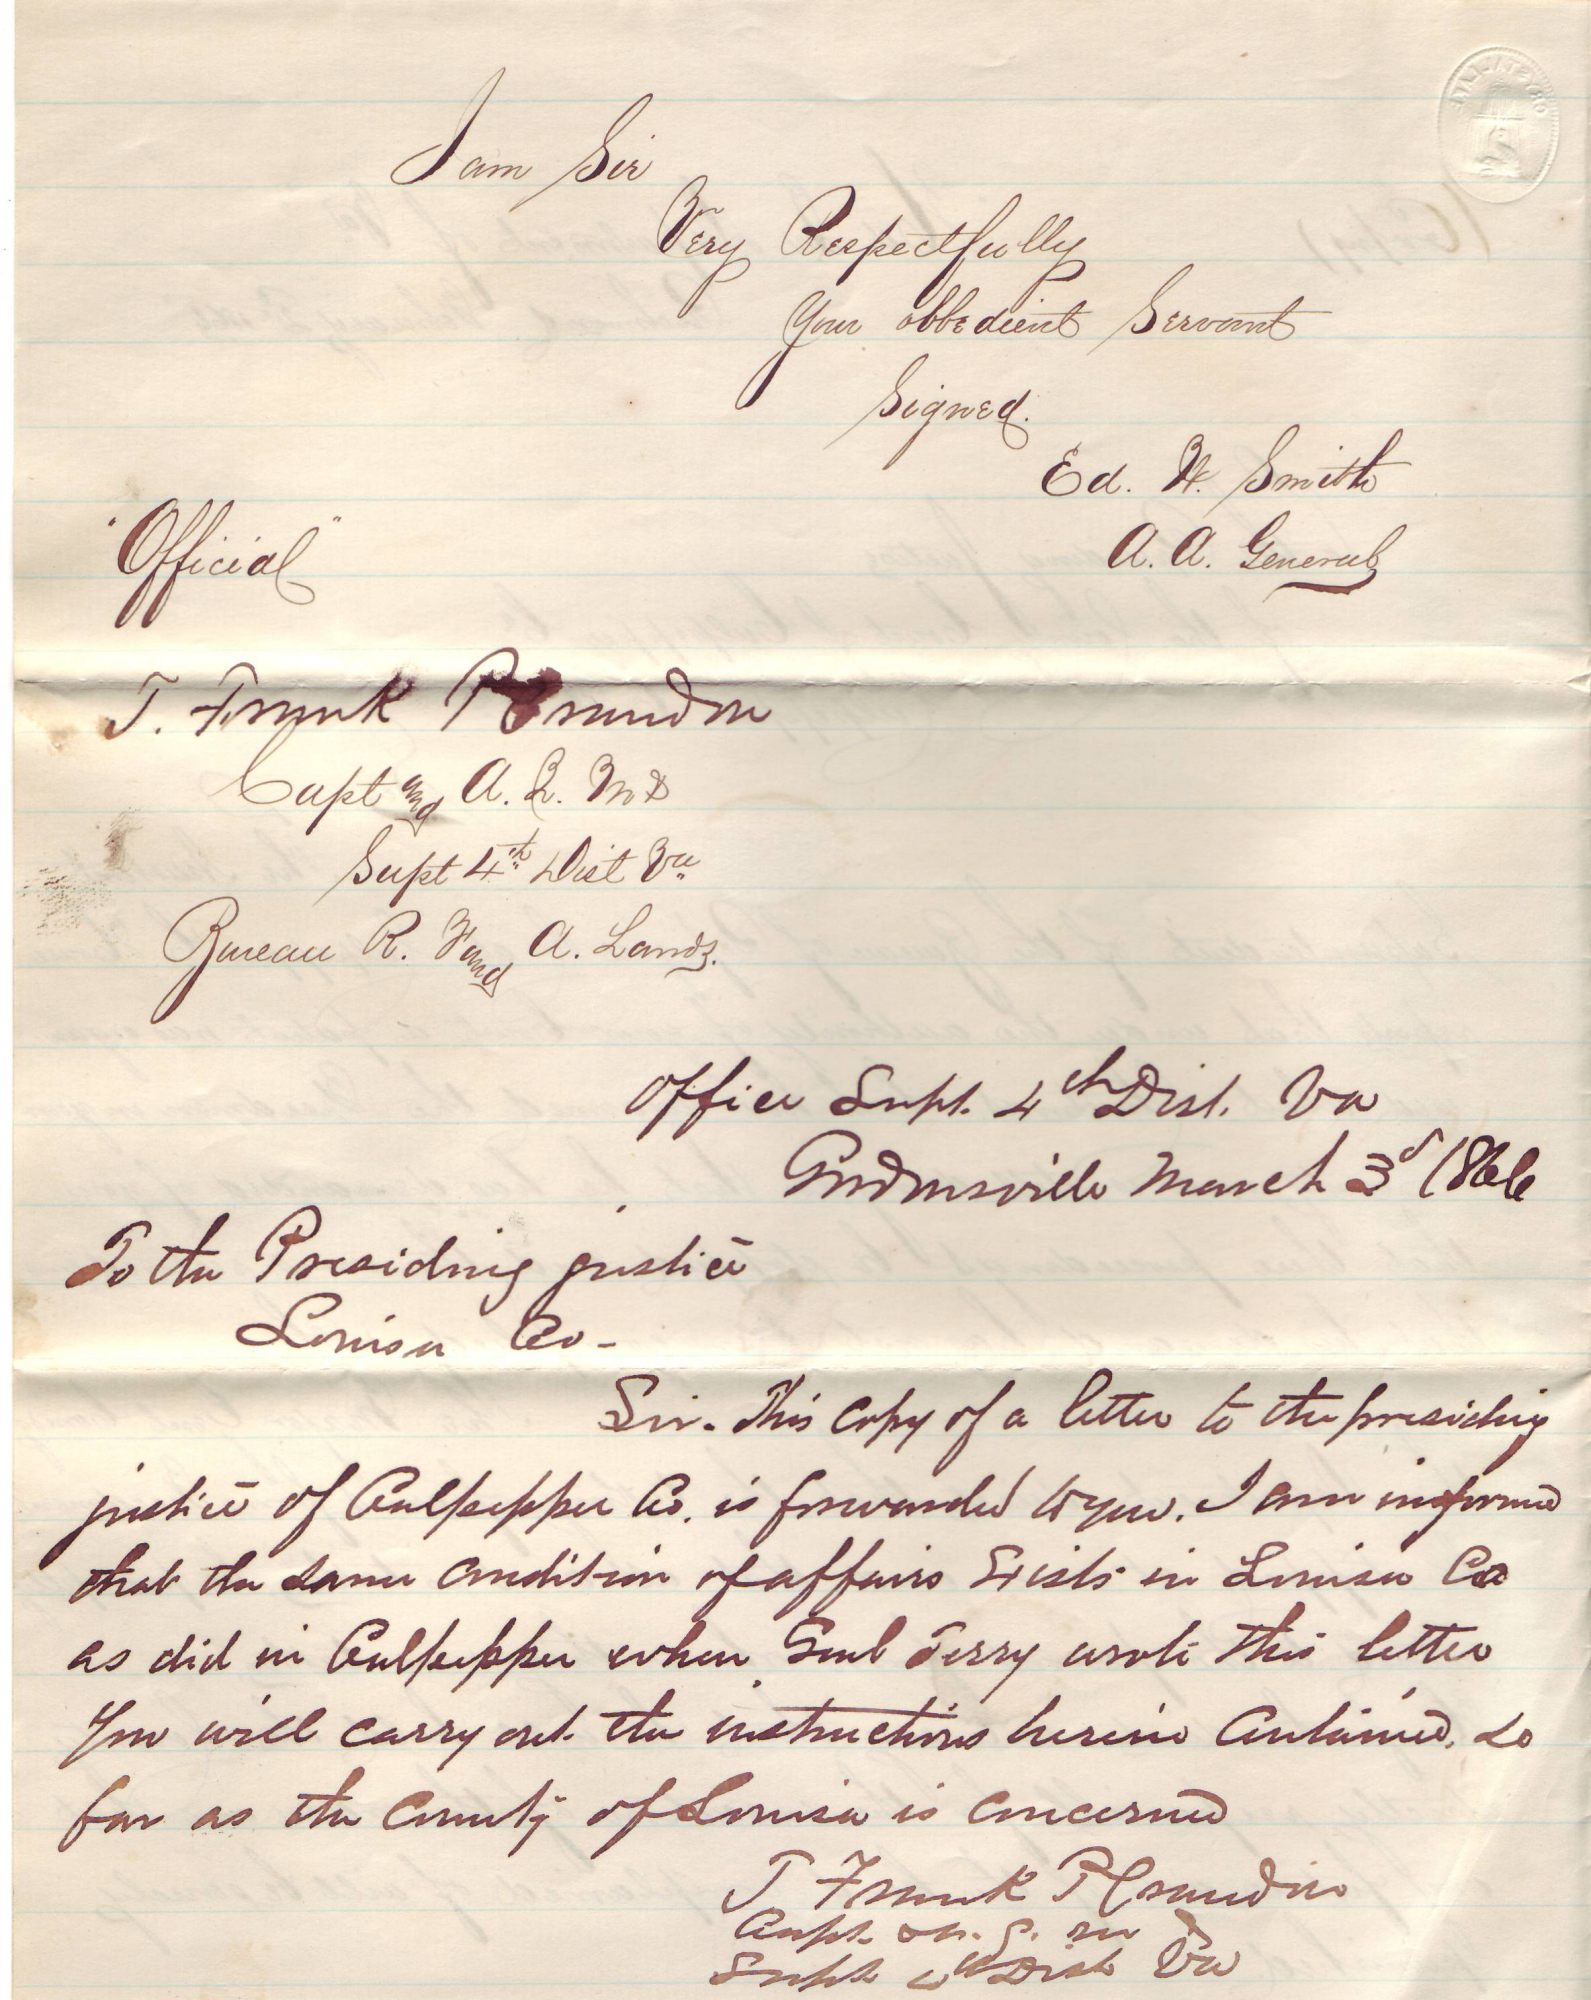 I am Sir
Very Respectfully
Your obbedient Servant
Signed.
Ed. W. Smith
A. A. General
"Official"
T. Frank P Crandon
Capt and A. Q. M &
Supt 4th Dist Va
Bureau R. F and A. Lands.
Office Supt. 4th Dist. Va
Gordonsville March 3d 1866
To the Presiding justice
Louisa Co-
Sir. This copy of a letter to the presiding
justice of Culpepper Co. is forwarded to you. I am informed
that the same condition of affairs Exists in Louisa Co
as did in Culpepper when Genl Terry wrote this letter
You will carry out the instructions herein Contained. so
far as the County of Louisa is concerned
T Frank P Crandon
Capt. &
Supt 4th Dist Va